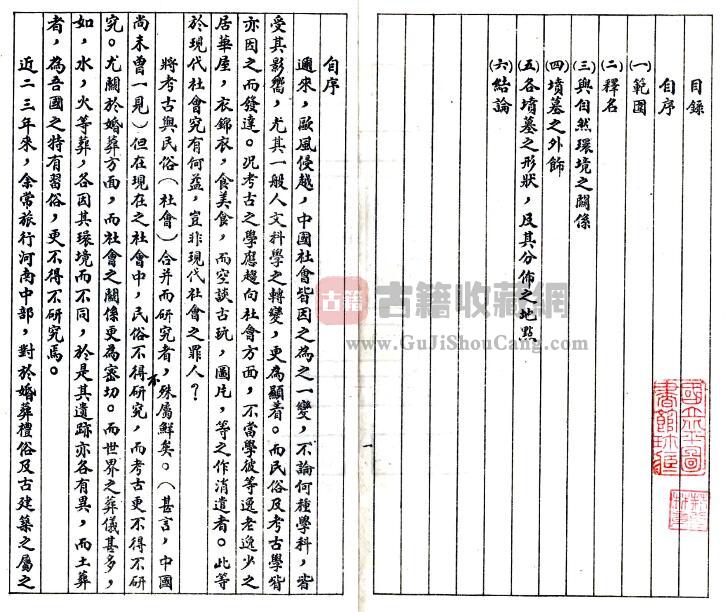 目錄
自序
(一)範圍
(二)釋名
(三)與自然環境之關係
(四)墳墓之外飾
(五)各墳墓之形狀，及其分佈之地點
(六)結論
自序
邇來，歐風侵越，中國社會皆因之為之一變，不論何種學科，皆
受其影響，尤其一般人文科學之轉變，更為顯着。而民俗及考古學皆
亦因之而發達。況考古之學應趨向社會方面，不當學彼等逸老逸少之
居華屋，衣錦衣，食美食，而空談古玩，圖片，等之作消遣者。此等
於現代社會究有何益，豈非現代社會之罪人？
將考古與民俗（社會）合并而研究者，殊屬鮮矣。（甚言，中國
尚未曾一見）但在現在之社會中，民俗不得不研究，而考古更不得不研
究。尤關於婚葬方面，而社會之關係更為密切。而世界之葬儀甚多，
如，水，火等葬，各因其環境而不同，於是其遺跡亦各有異，而土葬
者，為吾國之特有習俗，更不得不研究焉。
近二三年來，余常旅行河南中部，對於婚葬禮俗及古建築之屬之
一
古籍
古籍收藏網
www.GuJiShouCang.com
國立北平圖
書館珍藏